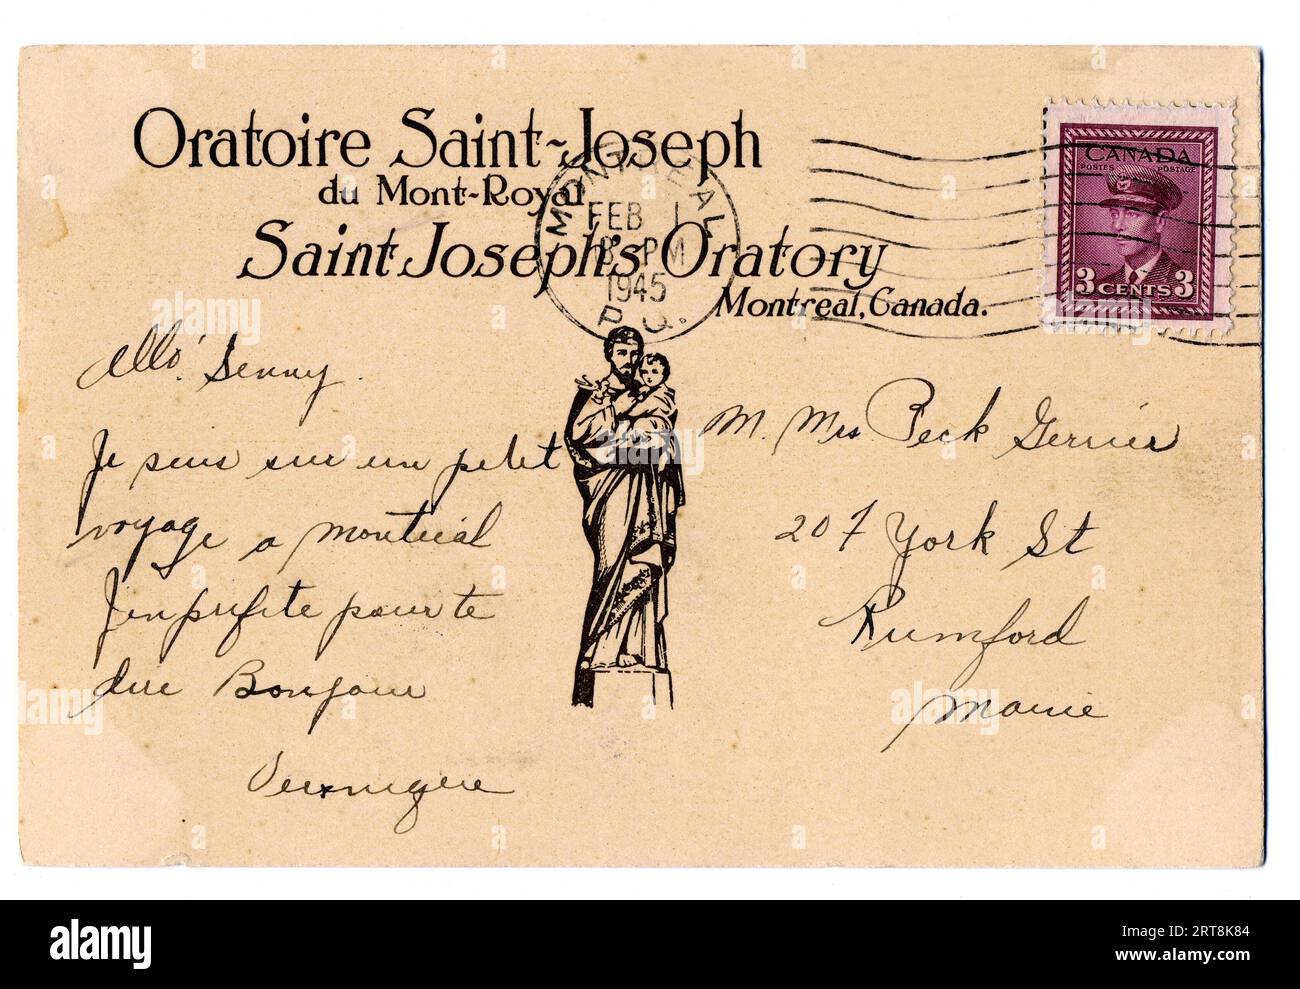 Oratoire Saint-Joseph
du Mont-Royal
Saint Joseph's Oratory
Montreal, Canada.
MONTREAL
FEB 1
8 PM
1945
P.Q.
CANADA
POSTES POSTAGE
3 CENTS 3
Allo! Jenny.
Je suis sur un petit
voyage a Montreal
J'en profite pour te
dire Bonjour
Veronique
M. Mrs Peck
207 York St
Rumford
Maine
alamy
Image ID: 2RT8K84
www.alamy.com